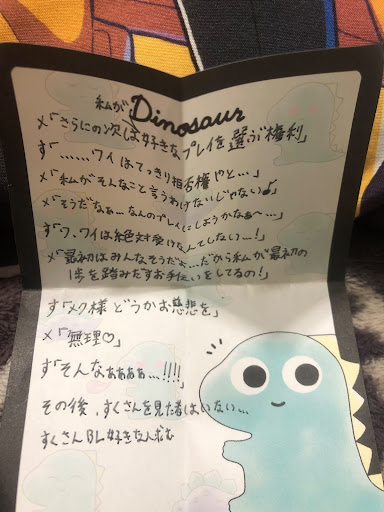 Dinosaur
私が
メ「さらにの次は好きなプレイを選ぶ権利」
す「……ワイはてっきり拒否権やと…」
メ「私がそんなこと言うわけないじゃない♪」
メ「そうだなぁ…なんのプレイにしようかなぁ〜…」
す「ワ、ワイは絶対受けなんてしない…!」
メ「最初はみんなそうだよ…だから私が最初の
1歩を踏みだすお手伝いをしてるの!」
す「メク様どうかお慈悲を」
メ「無理♡」
す「そんなぁぁぁぁ…!!!!」
その後、すくさんを見た者はいない…
すくさんBL好きなん求む